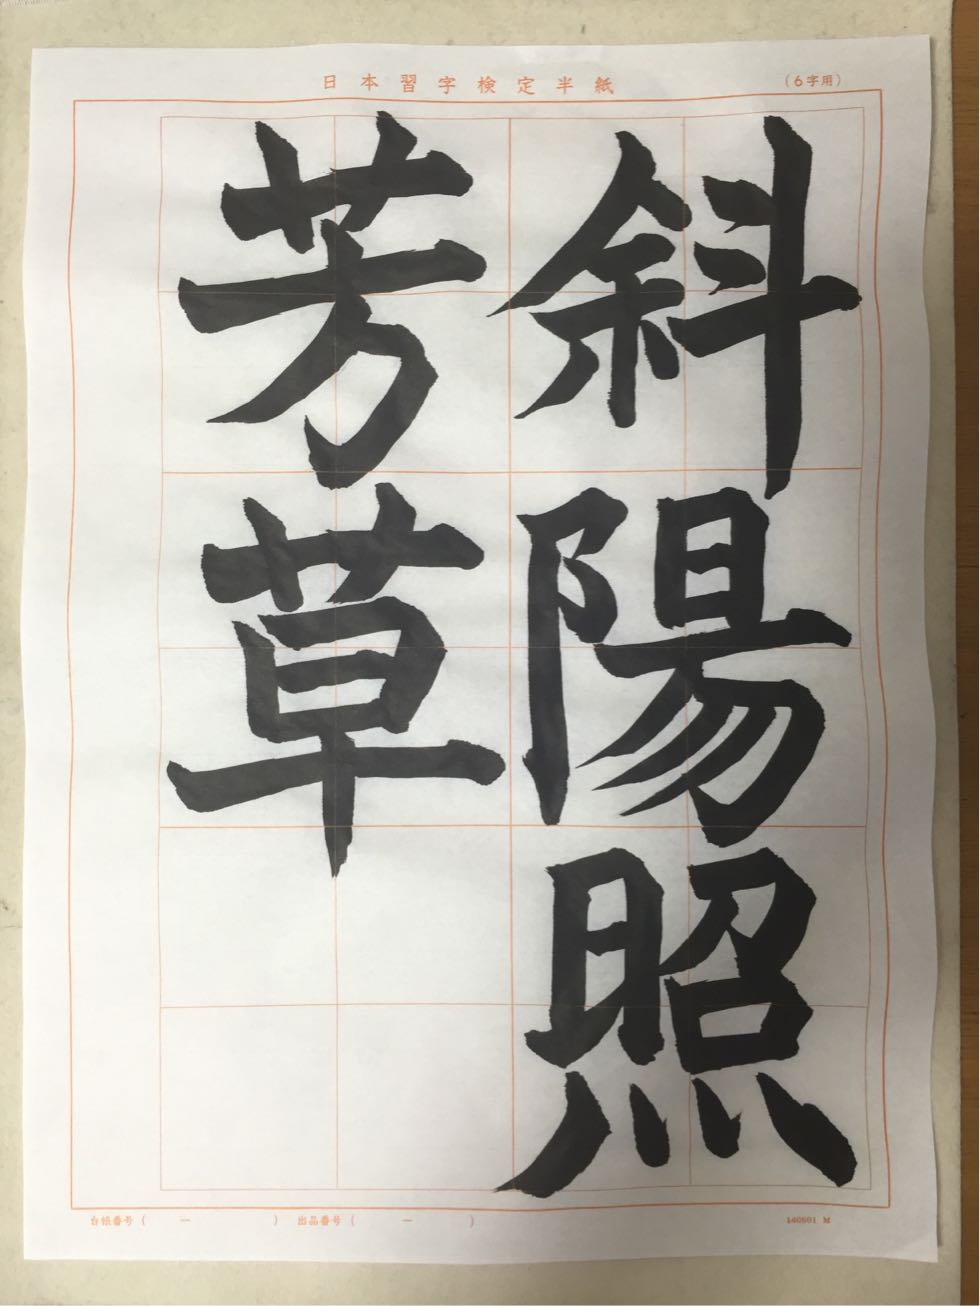 日本習字検定半紙
(6字用)
斜陽照
芳草
台帳番号 ( ー )
出品番号 ( ー )
140801 M